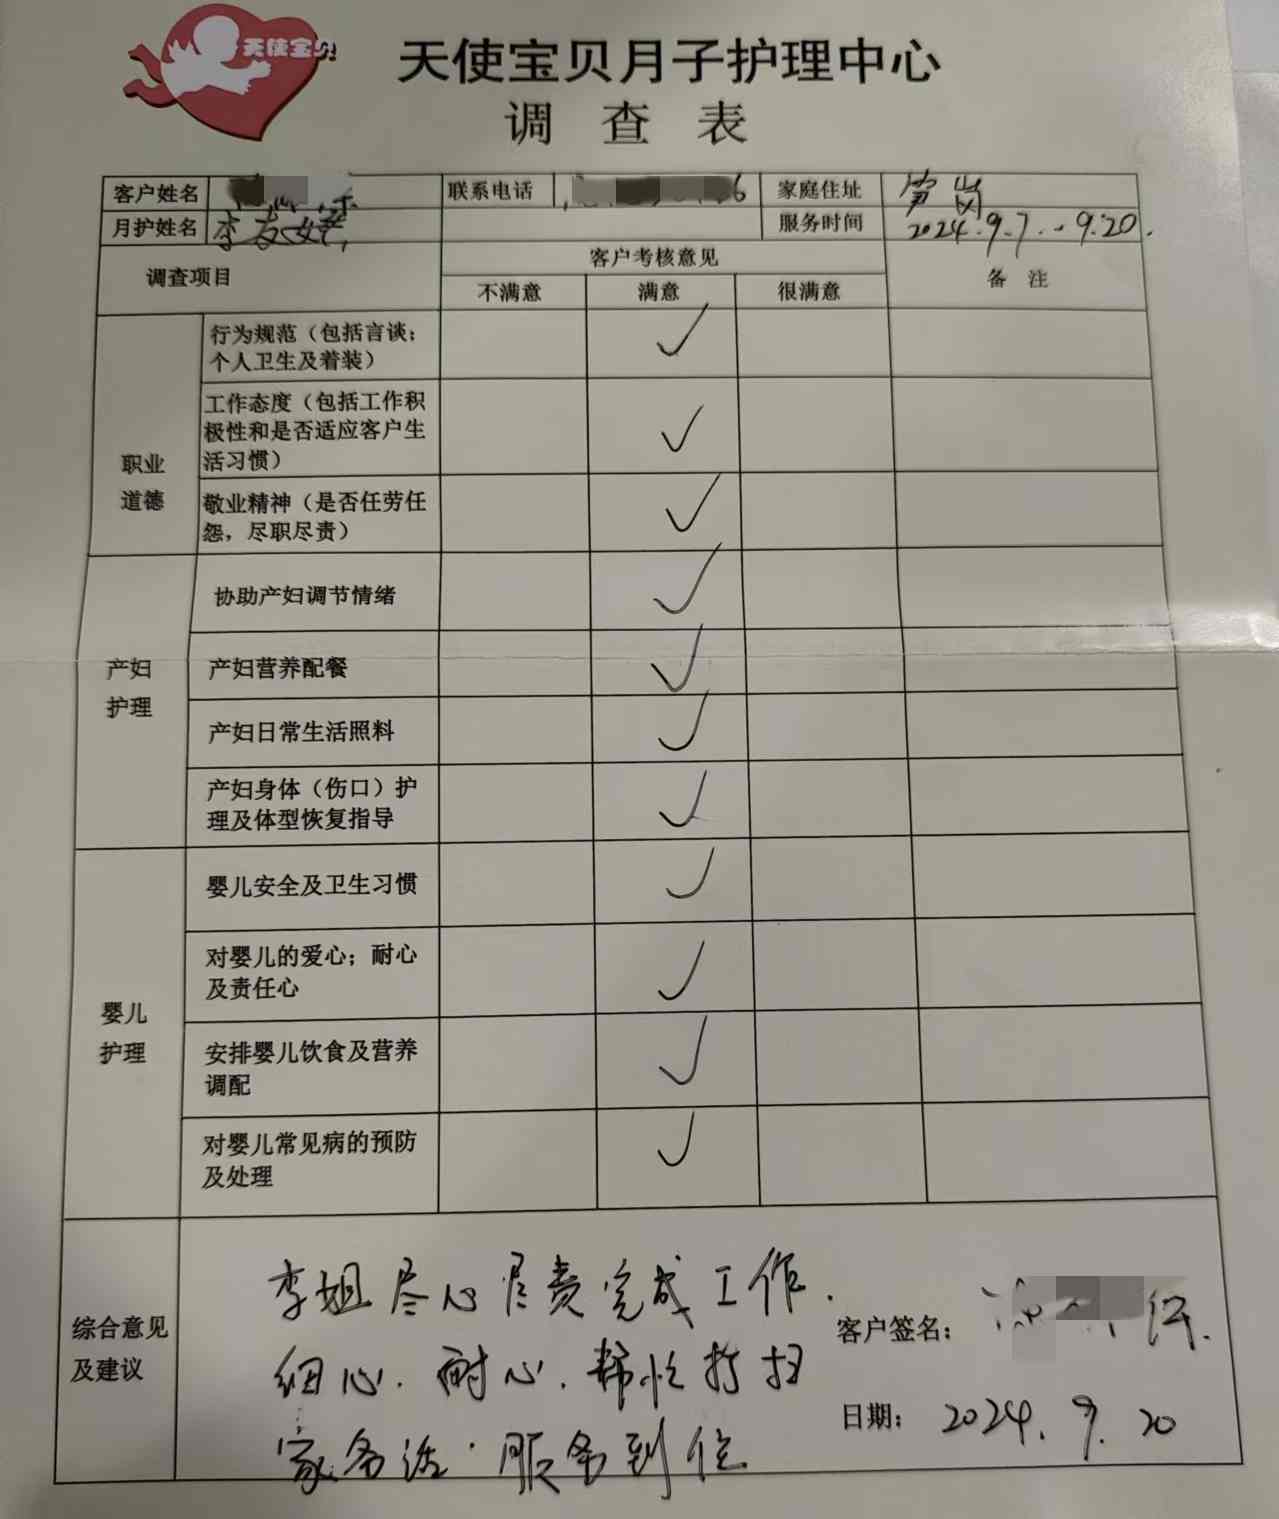 天使宝贝
天使宝贝月子护理中心
调 查 表
客户姓名 联系电话 6 家庭住址
月护姓名 李友 服务时间 2024.9.7.-9.20.
调查项目 客户考核意见 备 注
不满意 满意 很满意
行为规范（包括言谈；
个人卫生及着装）
工作态度（包括工作积
极性和是否适应客户生
活习惯）
职业
道德
敬业精神（是否任劳任
怨，尽职尽责）
协助产妇调节情绪
产妇
护理
产妇营养配餐
产妇日常生活照料
产妇身体（伤口）护
理及体型恢复指导
婴儿安全及卫生习惯
对婴儿的爱心；耐心
及责任心
婴儿
护理
安排婴儿饮食及营养
调配
对婴儿常见病的预防
及处理
综合意见
及建议
李姐尽心尽责完成工作.
细心.耐心.帮忙打扫
家务活.服务到位
客户签名：
日期： 2024.9.20